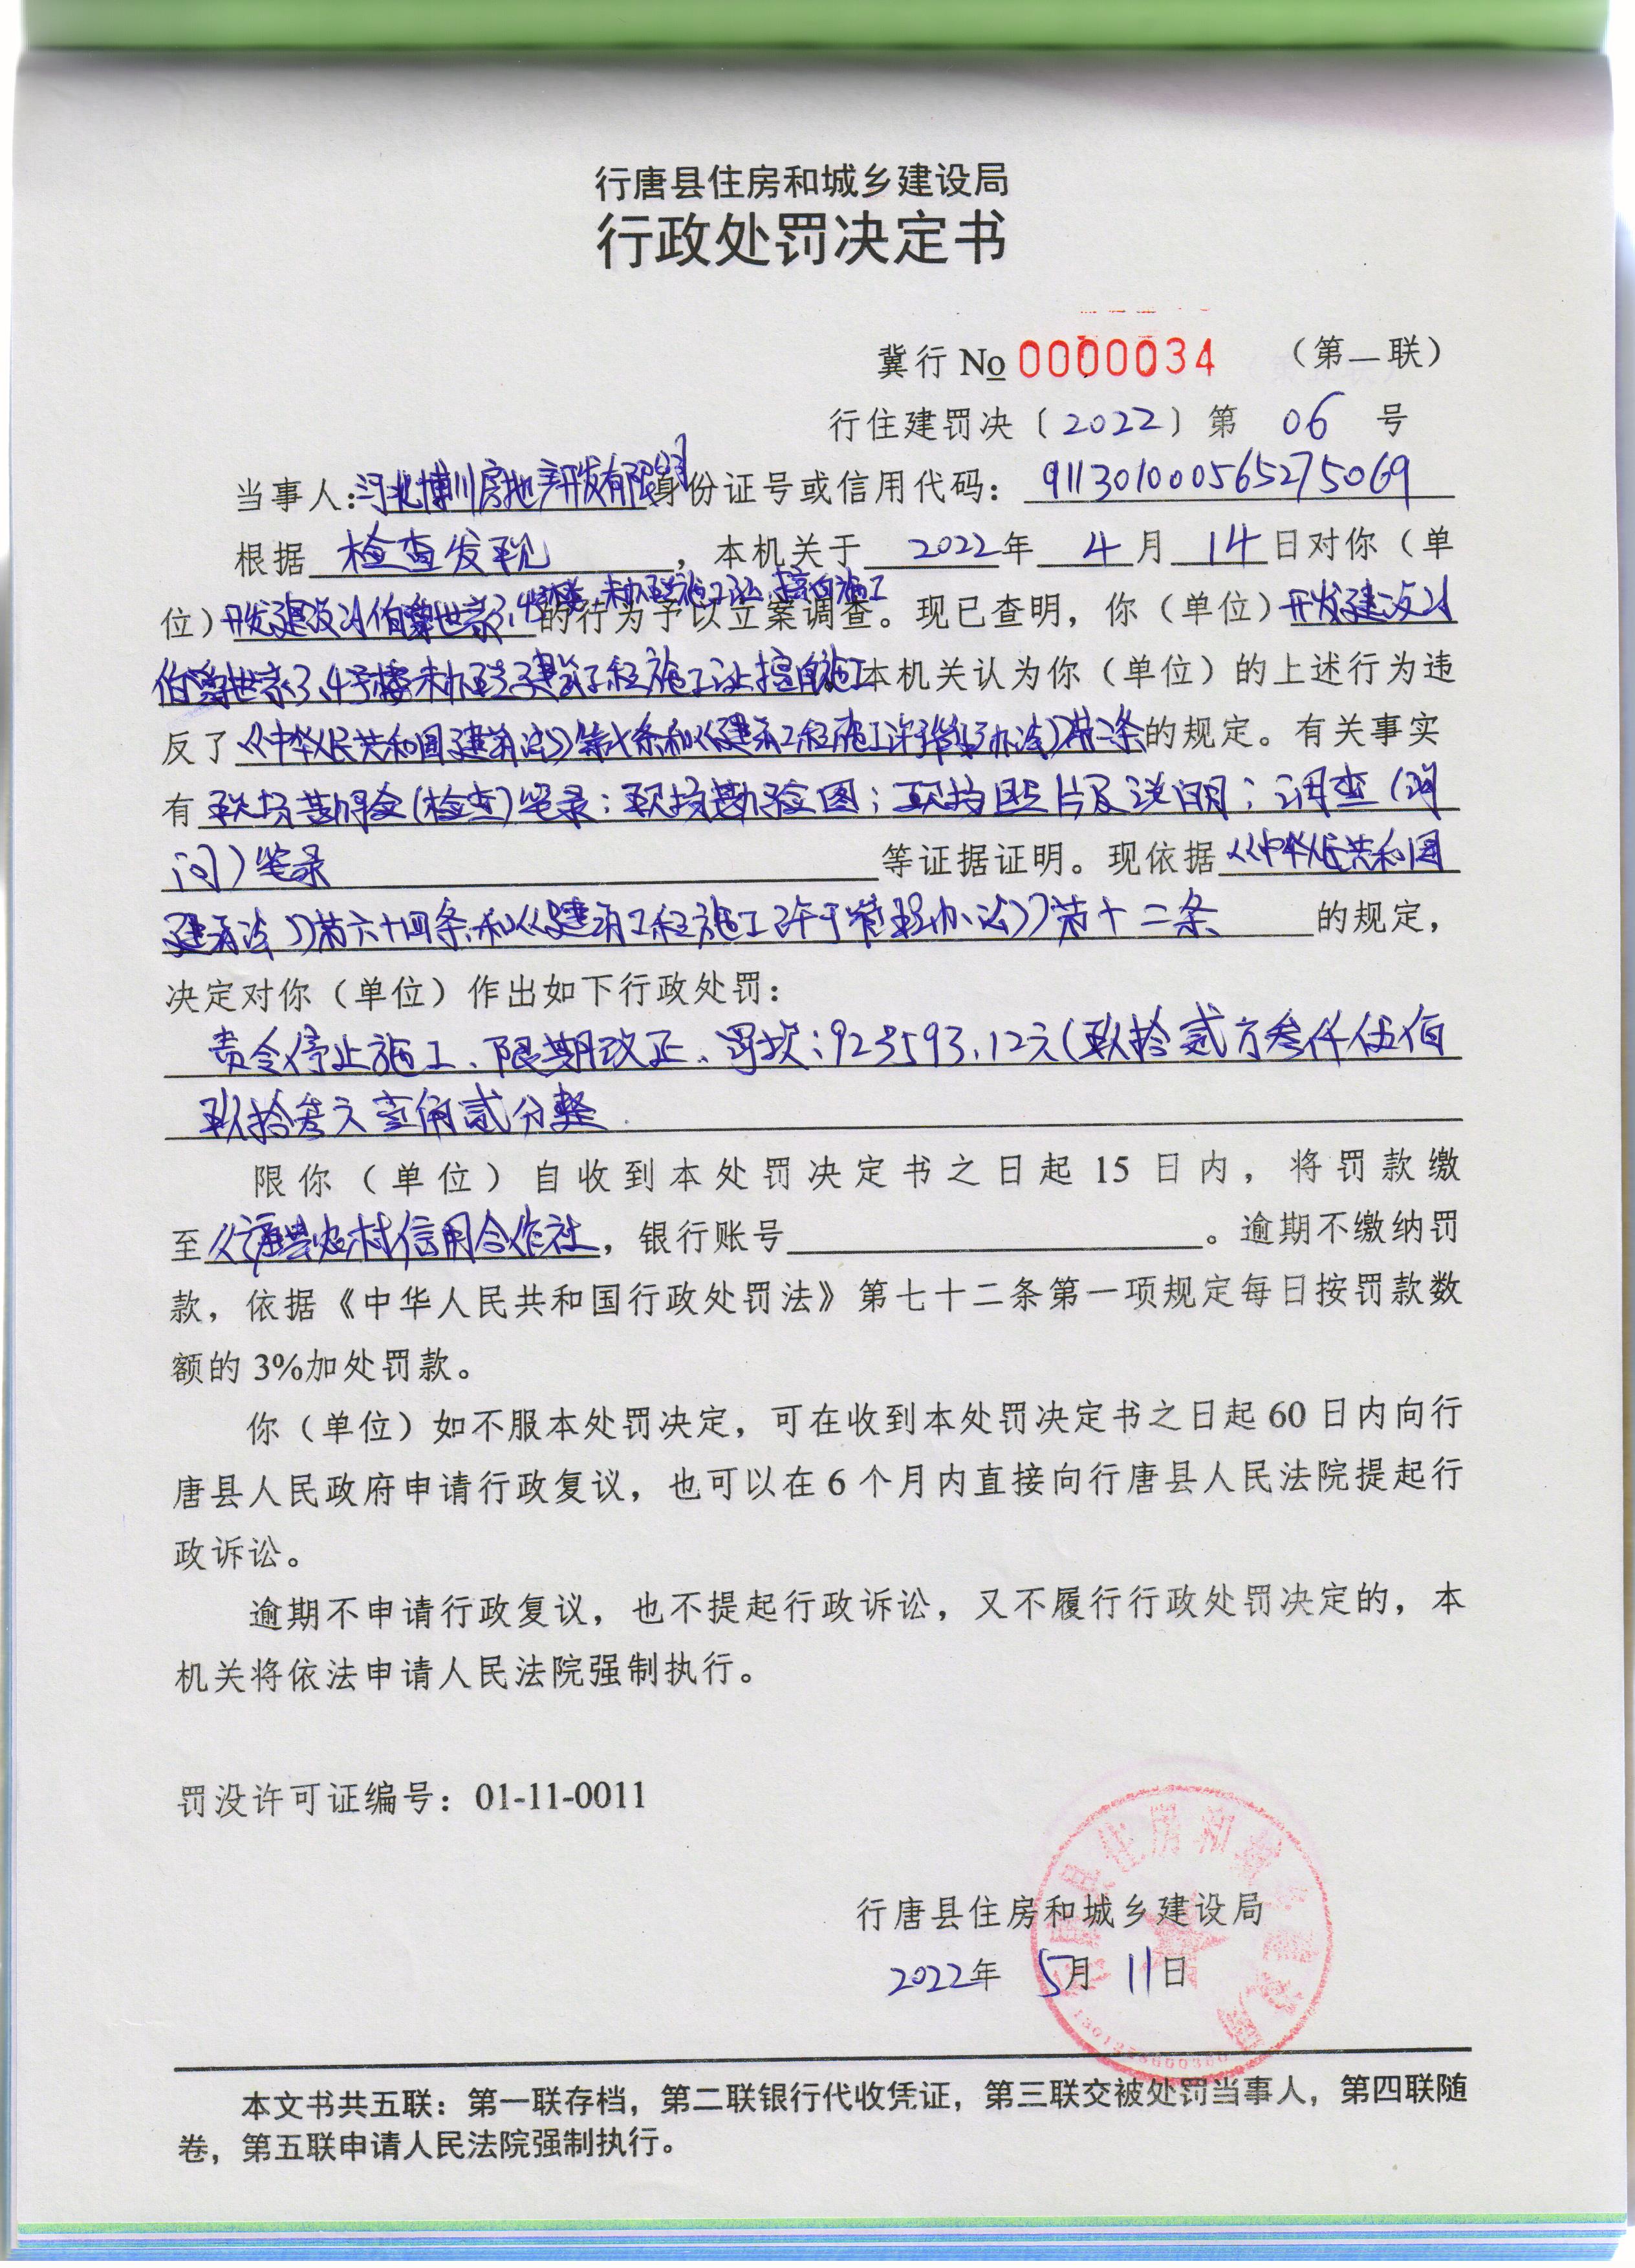 行唐县住房和城乡建设局
行政处罚决定书
冀行 No 0000034 （第一联）
行住建罚决〔2022〕第 06 号
当事人：河北博川房地产开发有限公司 身份证号或信用代码：911301000565275069
根据 检查发现 ，本机关于 2022年 4月 14日对你（单
位）开发建设的伯爵世家3.4号楼，未办理施工证，擅自施工 的行为予以立案调查。现已查明，你（单位）开发建设的
伯爵世家3、4号楼未办理建筑工程施工证擅自施工 本机关认为你（单位）的上述行为违
反了《中华人民共和国建筑法》第七条和《建筑工程施工许可管理办法》第三条的规定。有关事实
有 现场勘验（检查）笔录；现场勘验图；现场照片及说明；调查（询
问）笔录 等证据证明。现依据《中华人民共和国
建筑法》第六十四条和《建筑工程施工许可管理办法》第十二条 的规定，
决定对你（单位）作出如下行政处罚：
责令停止施工、限期改正、罚款：923593.12元（玖拾贰万叁仟伍佰
玖拾叁元壹角贰分整
限你（单位）自收到本处罚决定书之日起 15 日内，将罚款缴
至 行唐县农村信用合作社，银行账号 。逾期不缴纳罚
款，依据《中华人民共和国行政处罚法》第七十二条第一项规定每日按罚款数
额的 3%加处罚款。
你（单位）如不服本处罚决定，可在收到本处罚决定书之日起 60 日内向行
唐县人民政府申请行政复议，也可以在 6 个月内直接向行唐县人民法院提起行
政诉讼。
逾期不申请行政复议，也不提起行政诉讼，又不履行行政处罚决定的，本
机关将依法申请人民法院强制执行。
罚没许可证编号：01-11-0011
行唐县住房和城乡建设局
2022年 5月 11日
本文书共五联：第一联存档，第二联银行代收凭证，第三联交被处罚当事人，第四联随
卷，第五联申请人民法院强制执行。